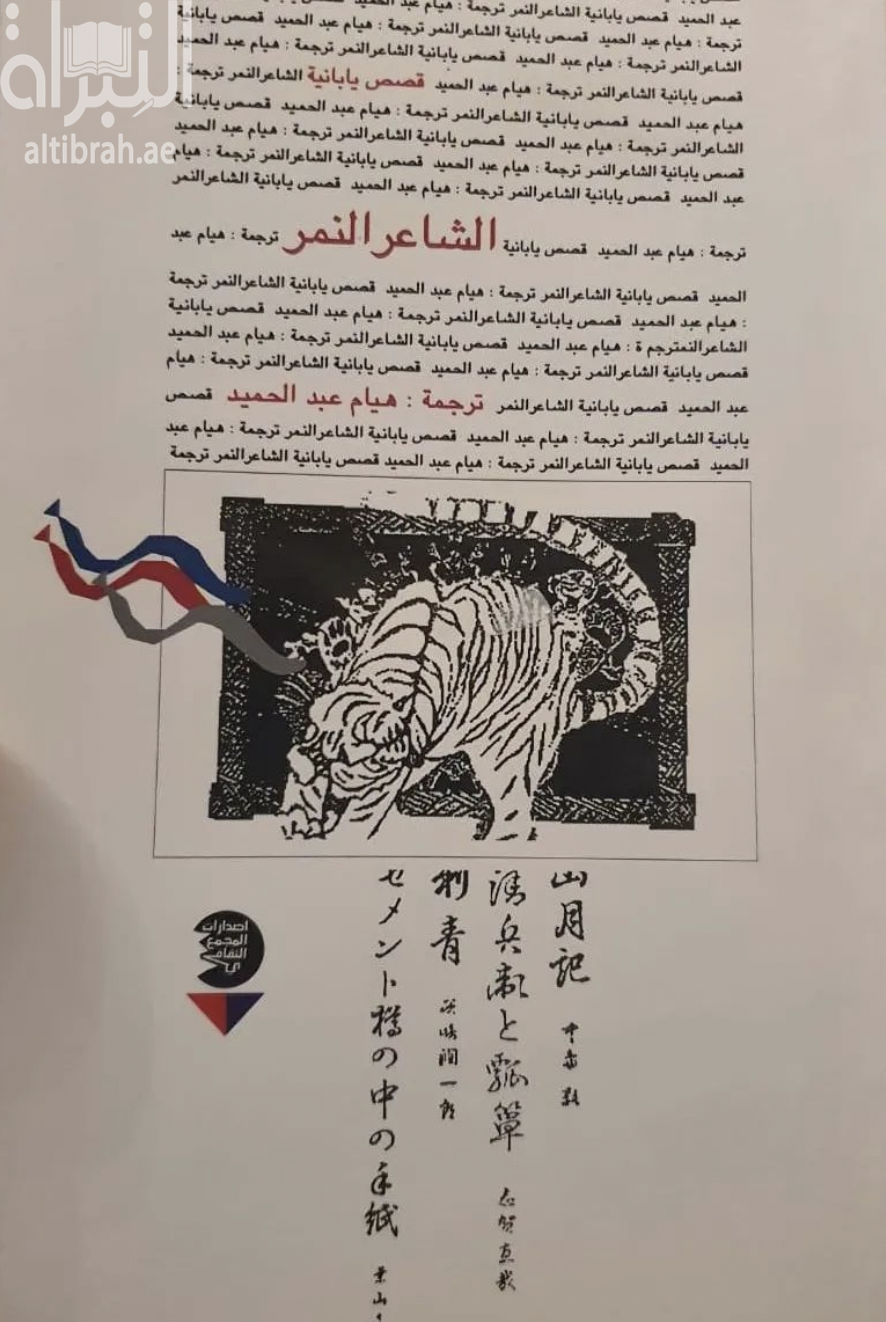 عبد الحميد قصص يابانية الشاعرالنمر ترجمة : هيام عبد الحميد قصص يابانية
ترجمة : هيام عبد الحميد قصص يابانية الشاعرالنمر ترجمة : هيام عبد الحميد قصص يابانية
الشاعرالنمر ترجمة : هيام عبد الحميد قصص يابانية الشاعرالنمر ترجمة : هيام عبد الحميد
قصص يابانية الشاعرالنمر ترجمة : هيام عبد الحميد قصص يابانية الشاعرالنمر ترجمة :
هيام عبد الحميد قصص يابانية الشاعرالنمر ترجمة : هيام عبد الحميد قصص يابانية
الشاعرالنمر ترجمة : هيام عبد الحميد قصص يابانية الشاعرالنمر ترجمة : هيام عبد الحميد
قصص يابانية الشاعرالنمر ترجمة : هيام عبد الحميد قصص يابانية الشاعرالنمر ترجمة : هيام
عبد الحميد قصص يابانية الشاعرالنمر ترجمة : هيام عبد الحميد قصص يابانية الشاعرالنمر
ترجمة : هيام عبد الحميد قصص يابانية الشاعرالنمر ترجمة : هيام عبد
الحميد قصص يابانية الشاعرالنمر ترجمة : هيام عبد الحميد قصص يابانية الشاعرالنمر ترجمة
: هيام عبد الحميد قصص يابانية الشاعرالنمر ترجمة : هيام عبد الحميد قصص يابانية
الشاعرالنمترجم ة : هيام عبد الحميد قصص يابانية الشاعرالنمر ترجمة : هيام عبد الحميد
قصص يابانية الشاعرالنمر ترجمة : هيام عبد الحميد قصص يابانية الشاعرالنمر ترجمة : هيام
عبد الحميد قصص يابانية الشاعرالنمر ترجمة : هيام عبد الحميد قصص
يابانية الشاعرالنمر ترجمة : هيام عبد الحميد قصص يابانية الشاعرالنمر ترجمة : هيام عبد
الحميد قصص يابانية الشاعرالنمر ترجمة : هيام عبد الحميد قصص يابانية الشاعرالنمر ترجمة
التبراه
altibrah.ae
山月記 中島敦
清兵衛と瓢箪 志賀直哉
刺青 谷崎潤一郎
セメント樽の中の手紙 葉山
اصدارات
المجمع
الثقاف
ي